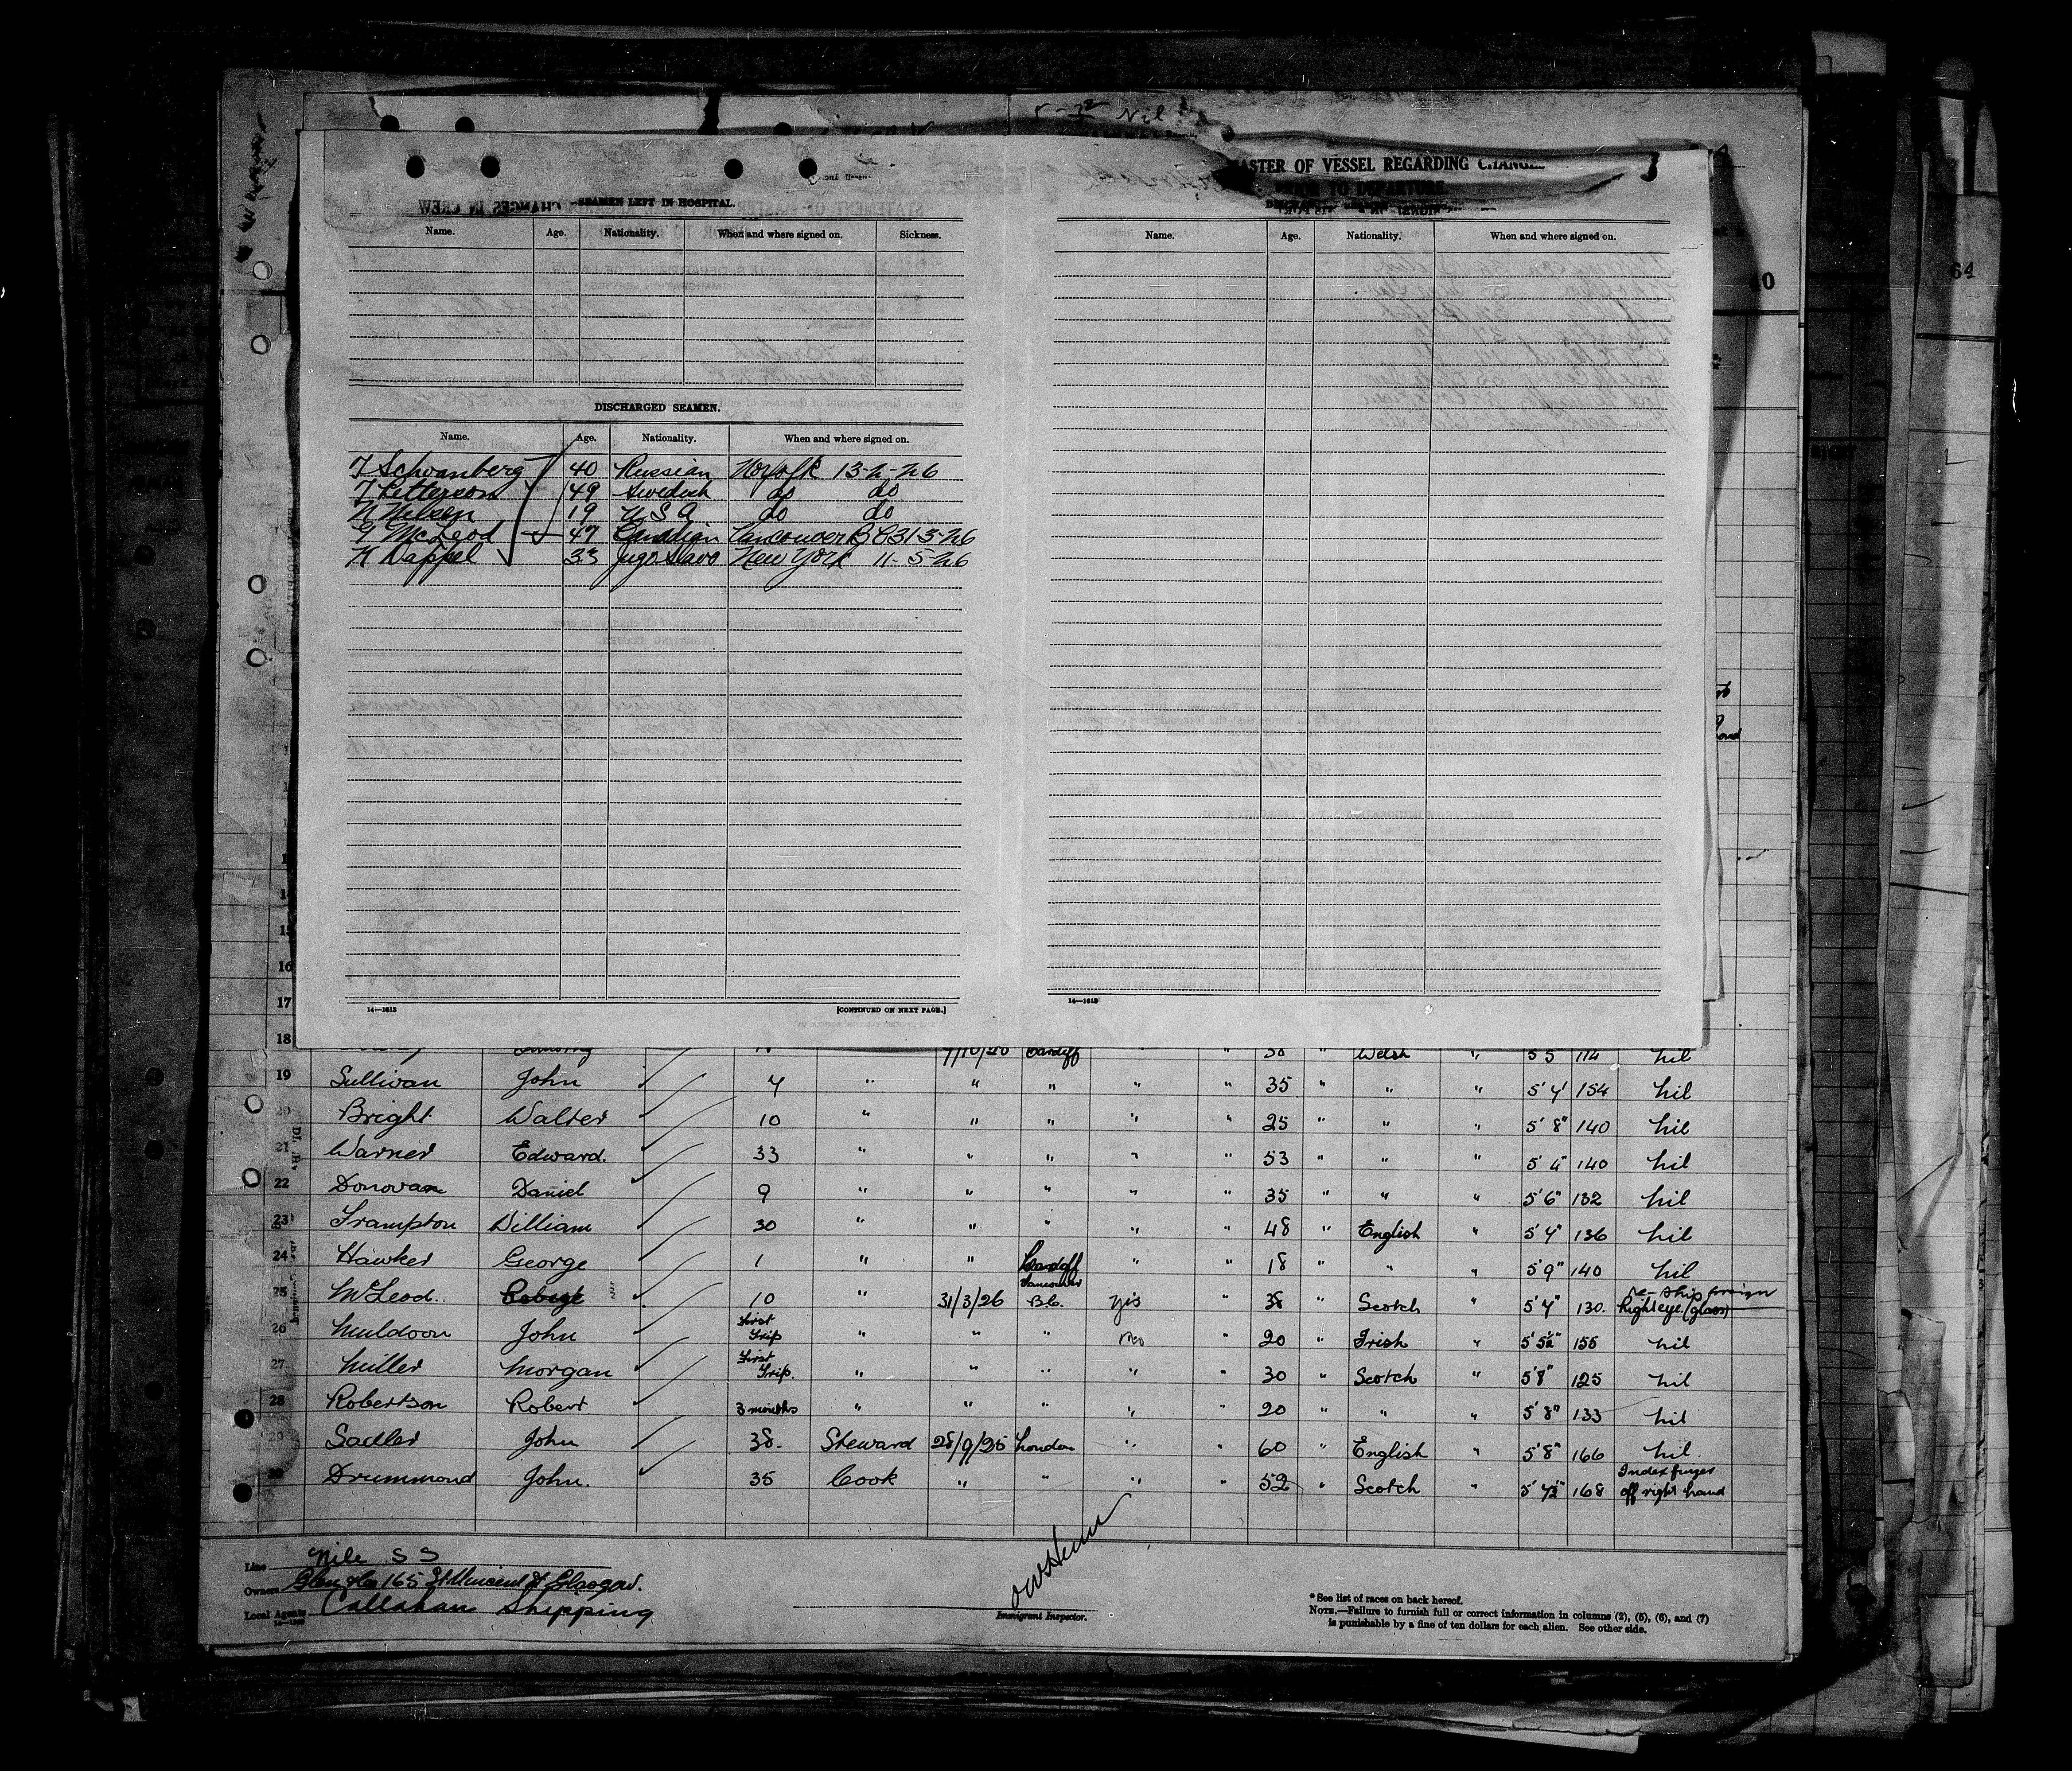 Nil
MASTER OF VESSEL REGARDING CHANGES
PRIOR TO DEPARTURE.
SEAMEN LEFT IN HOSPITAL.
Name. Age. Nationality. When and where signed on. Sickness.
DISCHARGED SEAMEN.
Name. Age. Nationality. When and where signed on.
T Schvanberg 40 Russian Norfolk 13-2-26
T Petterson 49 Swedish do do
N Nilsen 19 U S A do do
G McLeod 47 Canadian Vancouver B C 31-3-26
K Dappel 33 Jugo Slavo New York 11-5-26
14—1613 [CONTINUED ON NEXT PAGE.]
Name. Age. Nationality. When and where signed on.
14—1613
10
64
16
17
18 Cardiff " 38 " Welsh " 5 5 114 nil
19 Sullivan John 4 " " " " " 35 " " " 5' 4" 154 nil
20 Bright Walter 10 " " " " " 25 " " " 5' 8" 140 nil
21 Warner Edward. 33 " " " " " 53 " " " 5' 4" 140 nil
22 Donovan Daniel 9 " " " " " 35 " " " 5' 6" 132 nil
23 Frampton William 30 " " " " " 48 " English " 5' 4" 136 nil
24 Hawker George 1 " " Cardiff " " 18 " " " 5' 9" 140 nil
25 McLeod. George 10 31/3/26 Vancouver B.C. yes " 38 " Scotch " 5' 4" 130. re-ship foreign Right eye (glass)
26 Muldoon John First Trip " " " no " 20 " Irish " 5' 5½" 155 nil
27 Miller Morgan First Trip. " " " " " 30 " Scotch " 5' 8" 125 nil
28 Robertson Robert 3 months " " " " " 20 " " " 5' 8" 133 nil
29 Sadler John 38. Steward 28/9/25 London " " 60 " English " 5' 8" 166 nil
30 Drummond John. 35 Cook " " " " 52 " Scotch " 5' 7½" 168 Index finger off right hand
Line Nile S S
Owners Glen & Co 165 St Vincent St Glasgow.
Local Agents Callahan Shipping
Immigrant Inspector.
* See list of races on back hereof.
NOTE.—Failure to furnish full or correct information in columns (2), (5), (6), and (7)
is punishable by a fine of ten dollars for each alien. See other side.